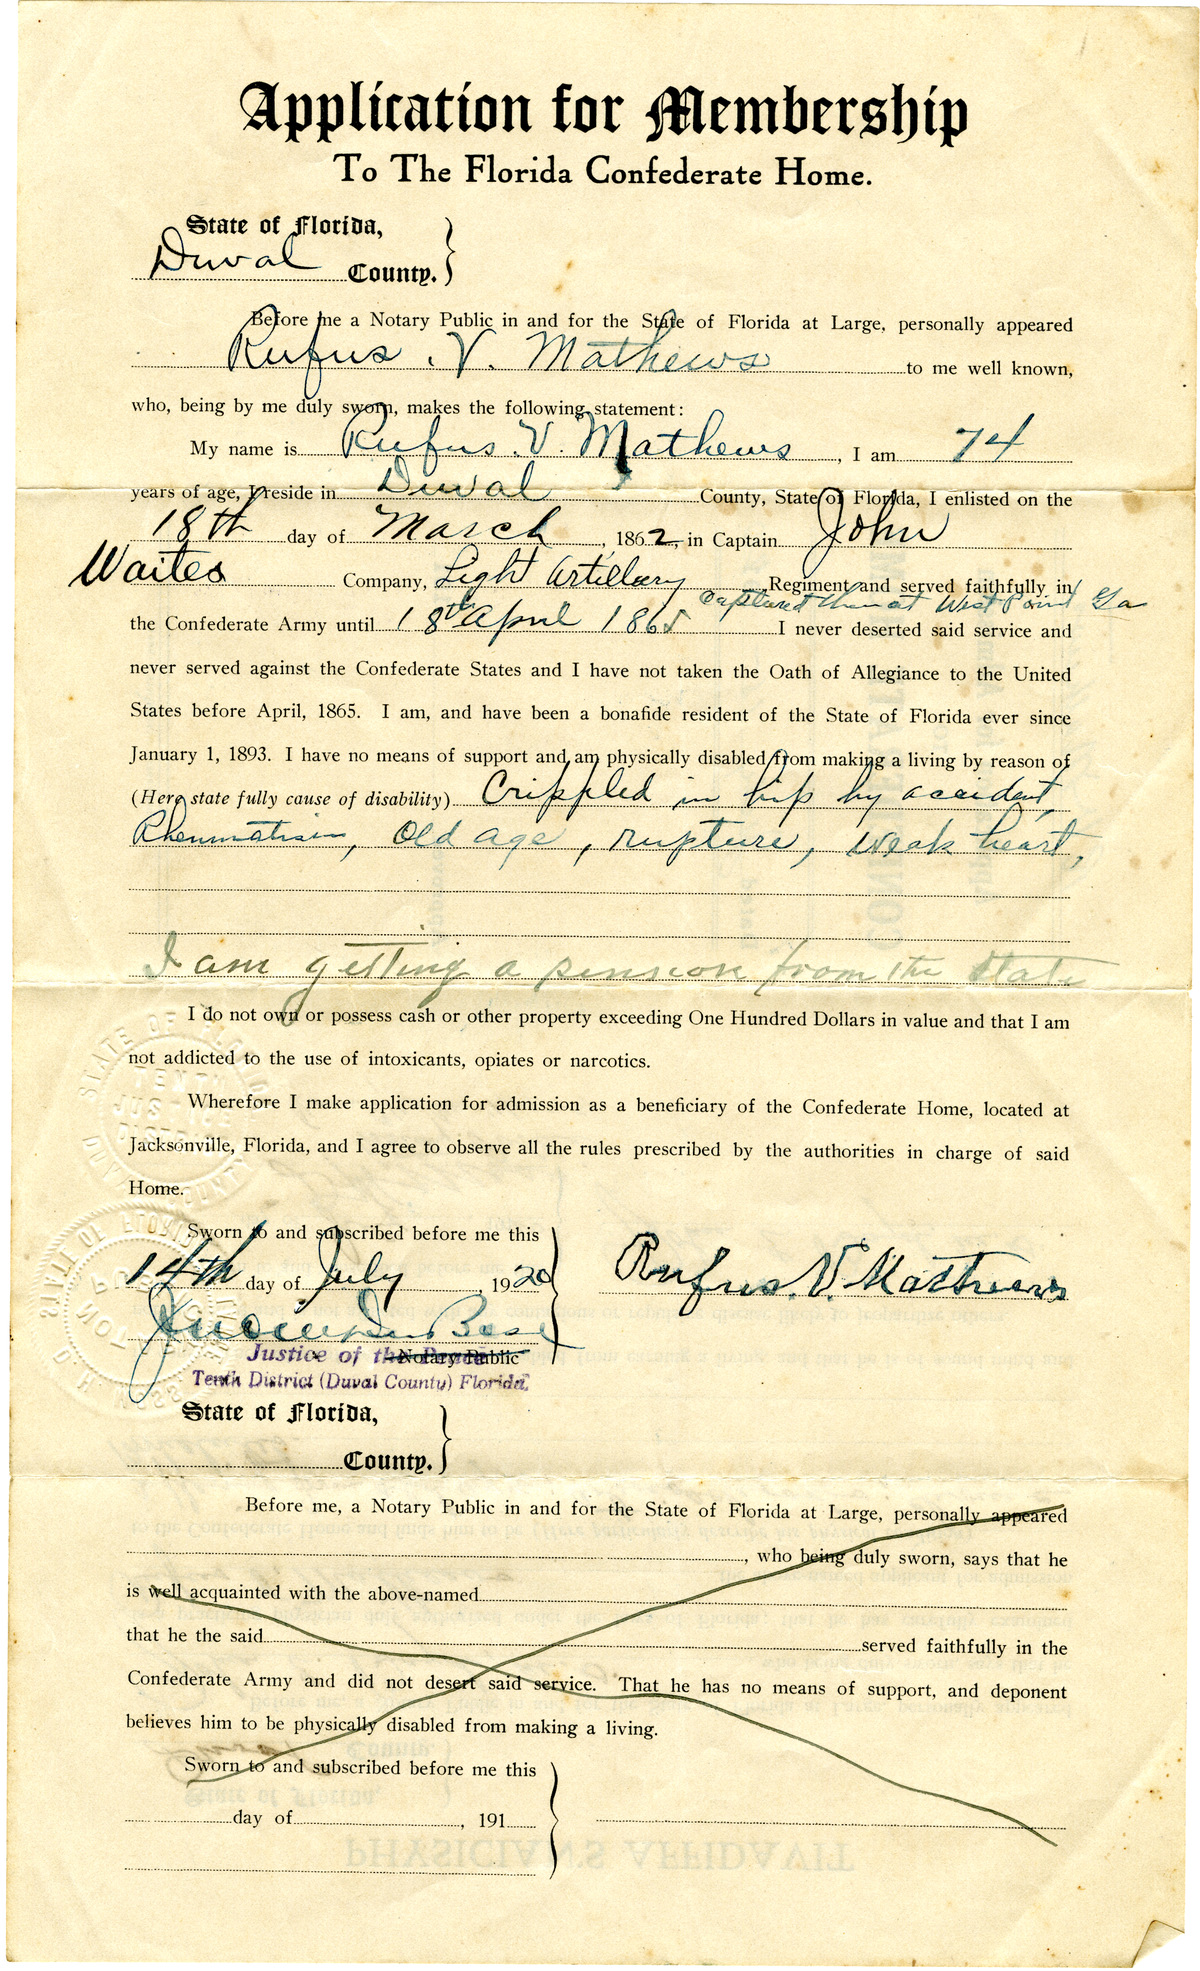 Application for Membership
To The Florida Confederate Home.
State of Florida,
Duval County.
Before me a Notary Public in and for the State of Florida at Large, personally appeared
Rufus . V. Mathews to me well known,
who, being by me duly sworn, makes the following statement:
My name is Rufus. V. Mathews, I am 74
years of age, I reside in Duval County, State of Florida, I enlisted on the
18th day of March, 1862, in Captain John
Waites Company, Light Artillery Regiment and served faithfully in
Captured then at West Point Ga
the Confederate Army until 18th April 1865 I never deserted said service and
never served against the Confederate States and I have not taken the Oath of Allegiance to the United
States before April, 1865. I am, and have been a bonafide resident of the State of Florida ever since
January 1, 1893. I have no means of support and am physically disabled from making a living by reason of
(Here state fully cause of disability) Crippled in hip by accident,
Rheumatism, Old age, rupture, weak heart,
I am getting a pension from the State
I do not own or possess cash or other property exceeding One Hundred Dollars in value and that I am
not addicted to the use of intoxicants, opiates or narcotics.
Wherefore I make application for admission as a beneficiary of the Confederate Home, located at
Jacksonville, Florida, and I agree to observe all the rules prescribed by the authorities in charge of said
Home.
Sworn to and subscribed before me this
14th day of July 1920 Rufus. V. Mathews
Notary Public
Justice of the Peace
Tenth District (Duval County) Florida.
State of Florida,
County.
Before me, a Notary Public in and for the State of Florida at Large, personally appeared
, who being duly sworn, says that he
is well acquainted with the above-named
that he the said served faithfully in the
Confederate Army and did not desert said service. That he has no means of support, and deponent
believes him to be physically disabled from making a living.
Sworn to and subscribed before me this
day of , 191